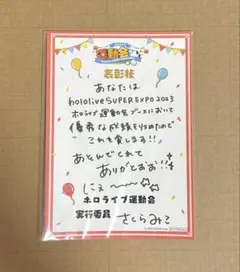 運動会
表彰状
あなたは
hololive SUPER EXPO 2023
ホロライブ運動会ブースにおいて
優秀な成績をおさめたので
これを賞します!!
あそんでくれて
ありがとお!!
にぇ〜〜
ホロライブ運動会
実行委員 さくらみこ